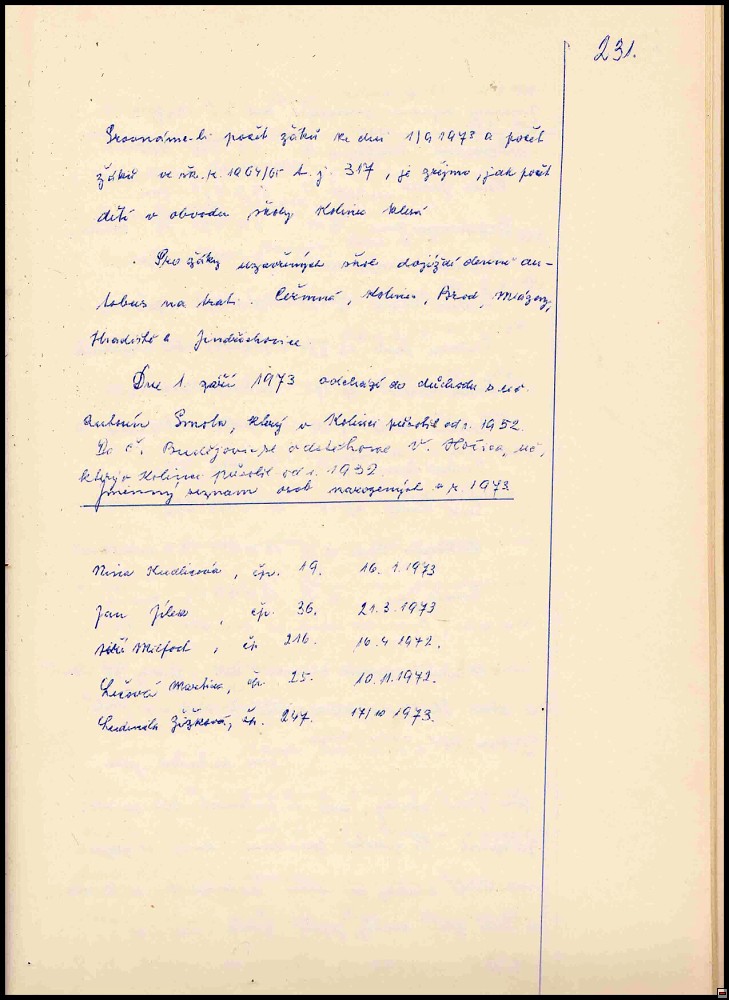 231.
Srovnáme-li počet žáků ke dni 1/9 1973 a počet
žáků ve šk. r. 1964/65 t. j. 317, je zřejmo, jak počet
dětí v obvodu školy Kolinec klesá
Pro žáky uzavřených škol dojíždí denně au-
tobus na trati. Čermná, Kolinec, Brod, Mlázovy,
Hradiště a Jindřichovice.
Dne 1. září 1973 odchází do důchodu
Antonín Smola, který v Kolinci působil od r. 1952.
Do Č. Budějovic se odstěhoval V. Hořice, uč.
který v Kolinci působil od r. 1932
Jmenný seznam osob narozených v r. 1973
Nina Kudlicová, čp. 19. 16. 1. 1973
Jan Jílek, čp. 36. 21. 3. 1973
Jiří Milfort, čp. 216. 16. 4 1972.
Martina, čp. 25. 10. 11. 1972.
Ludmila Žižková, čp. 247. 17/10 1973.